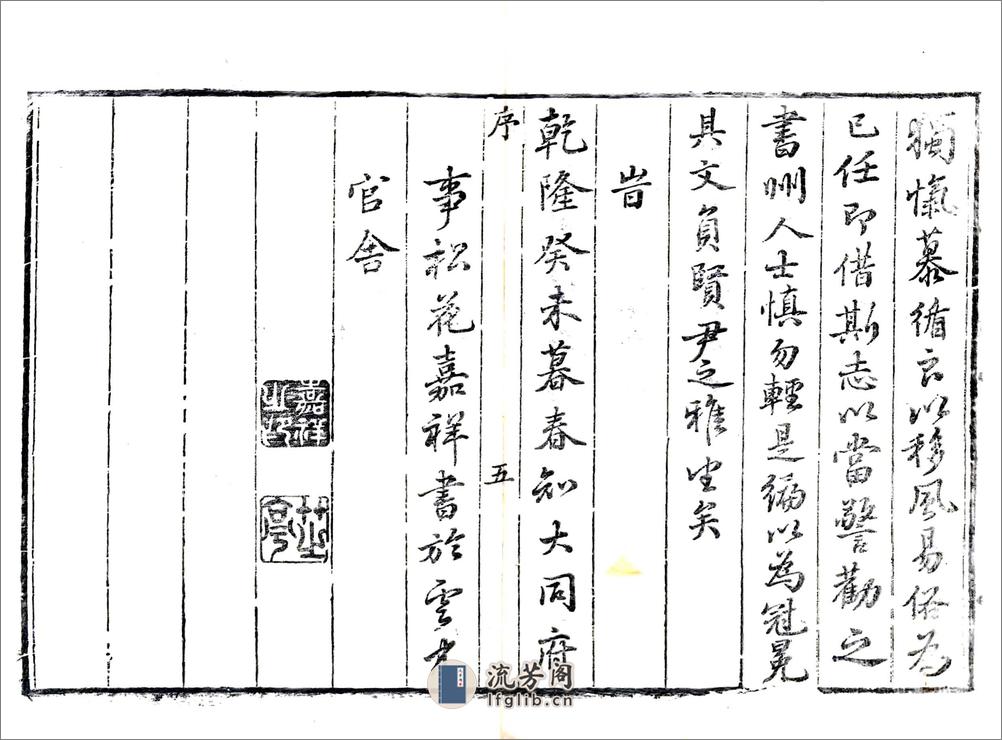 獨愾慕循良以移風易俗为
己任即借斯志以當警勸之
書州人士慎勿輕是編以為冠冕
具文負賢尹之雅望矣
旹
乾隆癸未暮春知大同府
序 五
事松花嘉祥書於雲中
官舍
嘉祥之印
流芳阁
lfglib.cn